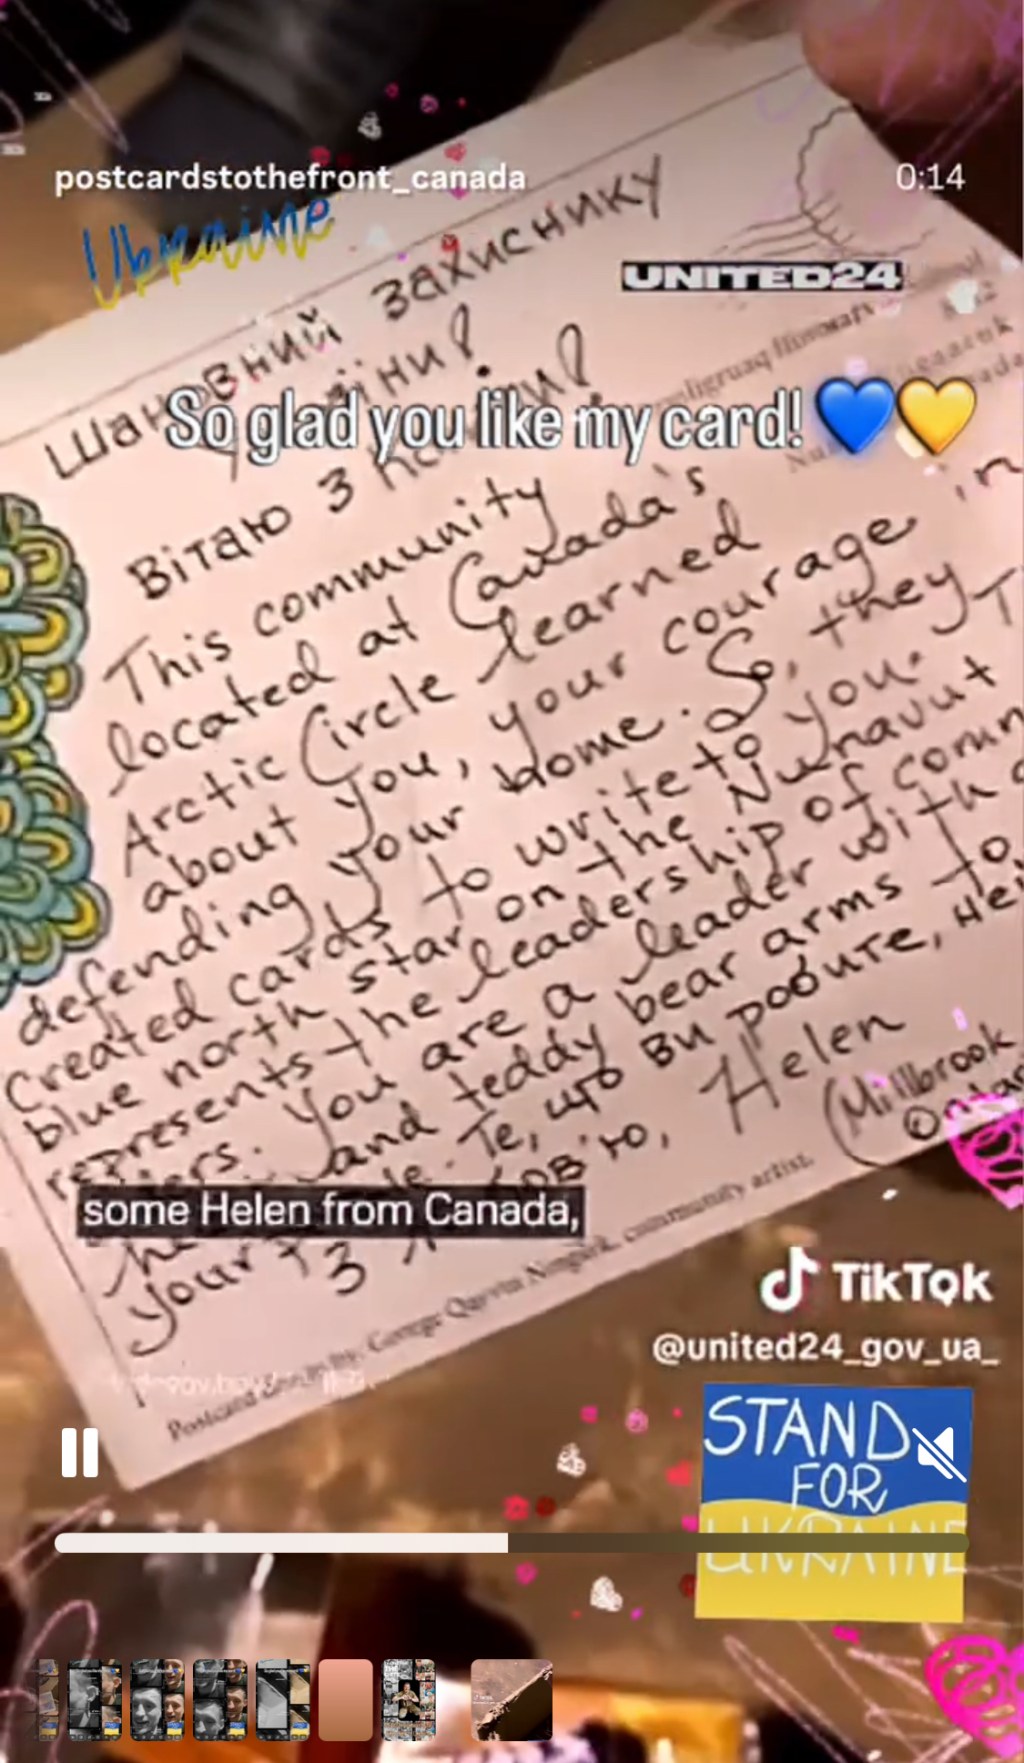 postcardstothefront_canada
0:14
Ukraine
UNITED24
Шановний захиснику
їни!
So glad you like my card! 💙💛
Вітаю з
This community
located at Canada's
Arctic Circle learned
about you, your courage in
defending your home. So, they
created cards to write to you. T
blue north star on the Nunavut
represents the leadership of
You are a leader with a
and teddy bear arms to
your Те, що ви робите,
З
Helen
(Millbrook
some Helen from Canada,
Postcard by: George Qayvin community artist.
TikTok
@united24_gov_ua_
STAND
FOR
UKRAINE